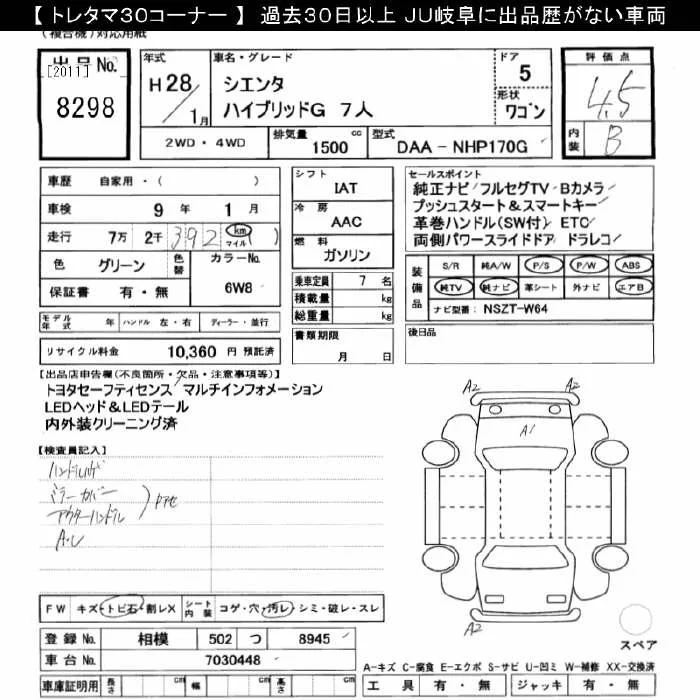 【 トレタマ30コーナー 】 過去30日以上 JU岐阜に出品歴がない車両
(複合機)対応用紙
出品No.
[2011]
8298
年式
H28/1月
車名・グレード
シエンタ
ハイブリッドG 7人
ドア
5
形状
ワゴン
2WD・4WD
排気量 1500 cc
型式 DAA-NHP170G
評価点
4.5
内装 B
車歴 自家用・( )
車検 9年 1月
走行 7万 2千 392 km マイル ( )
色 グリーン 色替 カラーNo. 6W8
保証書 有・無
モデル年式 年 ハンドル 左・右 ディーラー・並行
リサイクル料金 10,360 円 預託済
シフト
IAT
冷房
AAC
燃料
ガソリン
乗車定員 7 名
積載量 kg
総重量 kg
書類期限
月 日
セールスポイント
純正ナビ/フルセグTV・Bカメラ/
プッシュスタート&スマートキー/
革巻ハンドル(SW付) ETC/
両側パワースライドドア ドラレコ/
装備品
S/R 純A/W P/S P/W ABS
純TV 純ナビ 革シート 外ナビ エアB
ナビ型番: NSZT-W64
後日品
【出品店申告欄(不良箇所・欠品・注意事項等)】
トヨタセーフティセンス/マルチインフォメーション
LEDヘッド&LEDテール
内外装クリーニング済
【検査員記入】
ミラーカバー
アウターハンドル
A・U
A2 A2
A1
A2
FW キズ・トビ石・割レX シート内装 コゲ・穴・汚レ・シミ・破レ・スレ
登録No. 相模 502 つ 8945
車台No. 7030448
車庫証明用 長さ cm 幅 cm 高さ cm
スペア
A-キズ C-腐食 E-エクボ S-サビ U-凹ミ W-補修 XX-交換済
工具 有・無 ジャッキ 有・無